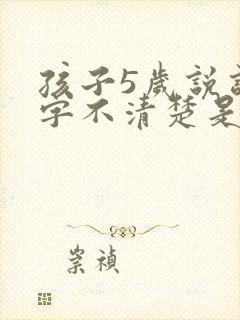 孩子5歲說
字不清楚是
崇禎